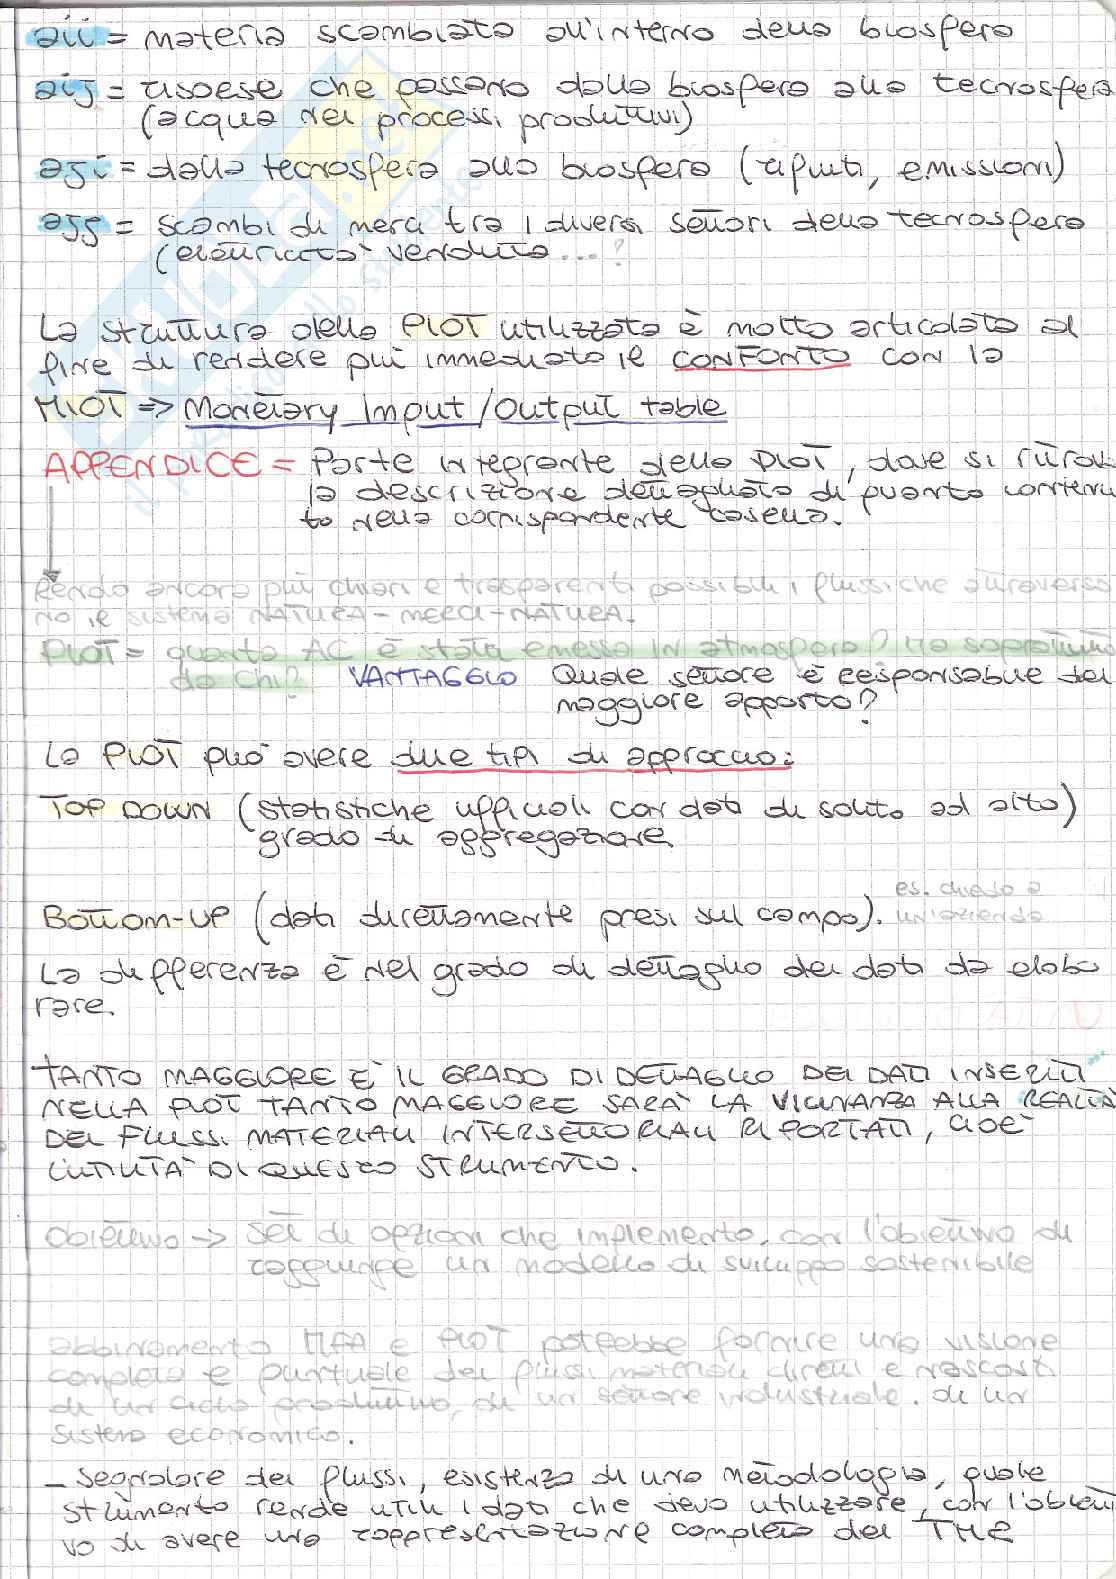 aii = materia scambiata all'interno della biosfera
aij = risorse che passano dalla biosfera alla tecnosfera
(acqua nei processi produttivi)
aji = dalla tecnosfera alla biosfera (rifiuti, emissioni)
ajj = scambi di merci tra i diversi settori della tecnosfera
(elettricità venduta...?
La struttura della PIOT utilizzata è molto articolata al
fine di rendere più immediato il CONFONTO con la
MIOT => Monetary Input/Output table
APPENDICE = Parte integrante della PIOT, dove si ritrova
la descrizione dettagliata di quanto contenu
to nella corrispondente casella.
Rendo ancora più chiari e trasparenti possibili i flussi che attraversa
no il sistema NATURA - MERCI - NATURA.
PIOT = quanto AC è stata emessa in atmosfera? Ma soprattutto
da chi? VANTAGGIO Quale settore è responsabile del
maggiore apporto?
La PIOT può avere due tipi di approccio:
TOP DOWN (statistiche ufficiali con dati di solito ad alto)
grado di aggregazione
es. chiedo a
Bottom-UP (dati direttamente presi sul campo). un'azienda
La differenza è nel grado di dettaglio dei dati da elabo
rare.
TANTO MAGGIORE E' IL GRADO DI DETTAGLIO DEI DATI INSERITI
NELLA PIOT TANTO MAGGIORE SARA' LA VICINANZA ALLA REALTA'
DEI FLUSSI MATERIALI INTERSETTORIALI RIPORTATI, CIOE'
L'UTILITA' DI QUESTO STRUMENTO.
Obiettivo -> Set di opzioni che implemento, con l'obiettivo di
raggiungere un modello di sviluppo sostenibile
abbinamento MFA e PIOT potrebbe fornire una visione
completa e puntuale dei flussi materiali diretti e nascosti
di un ciclo produttivo, di un settore industriale. di un
sistema economico.
- Segnalare dei flussi, esistenza di una metodologia, quale
strumento rende utili i dati che devo utilizzare, con l'obietti
vo di avere una rappresentazione completa del TMR